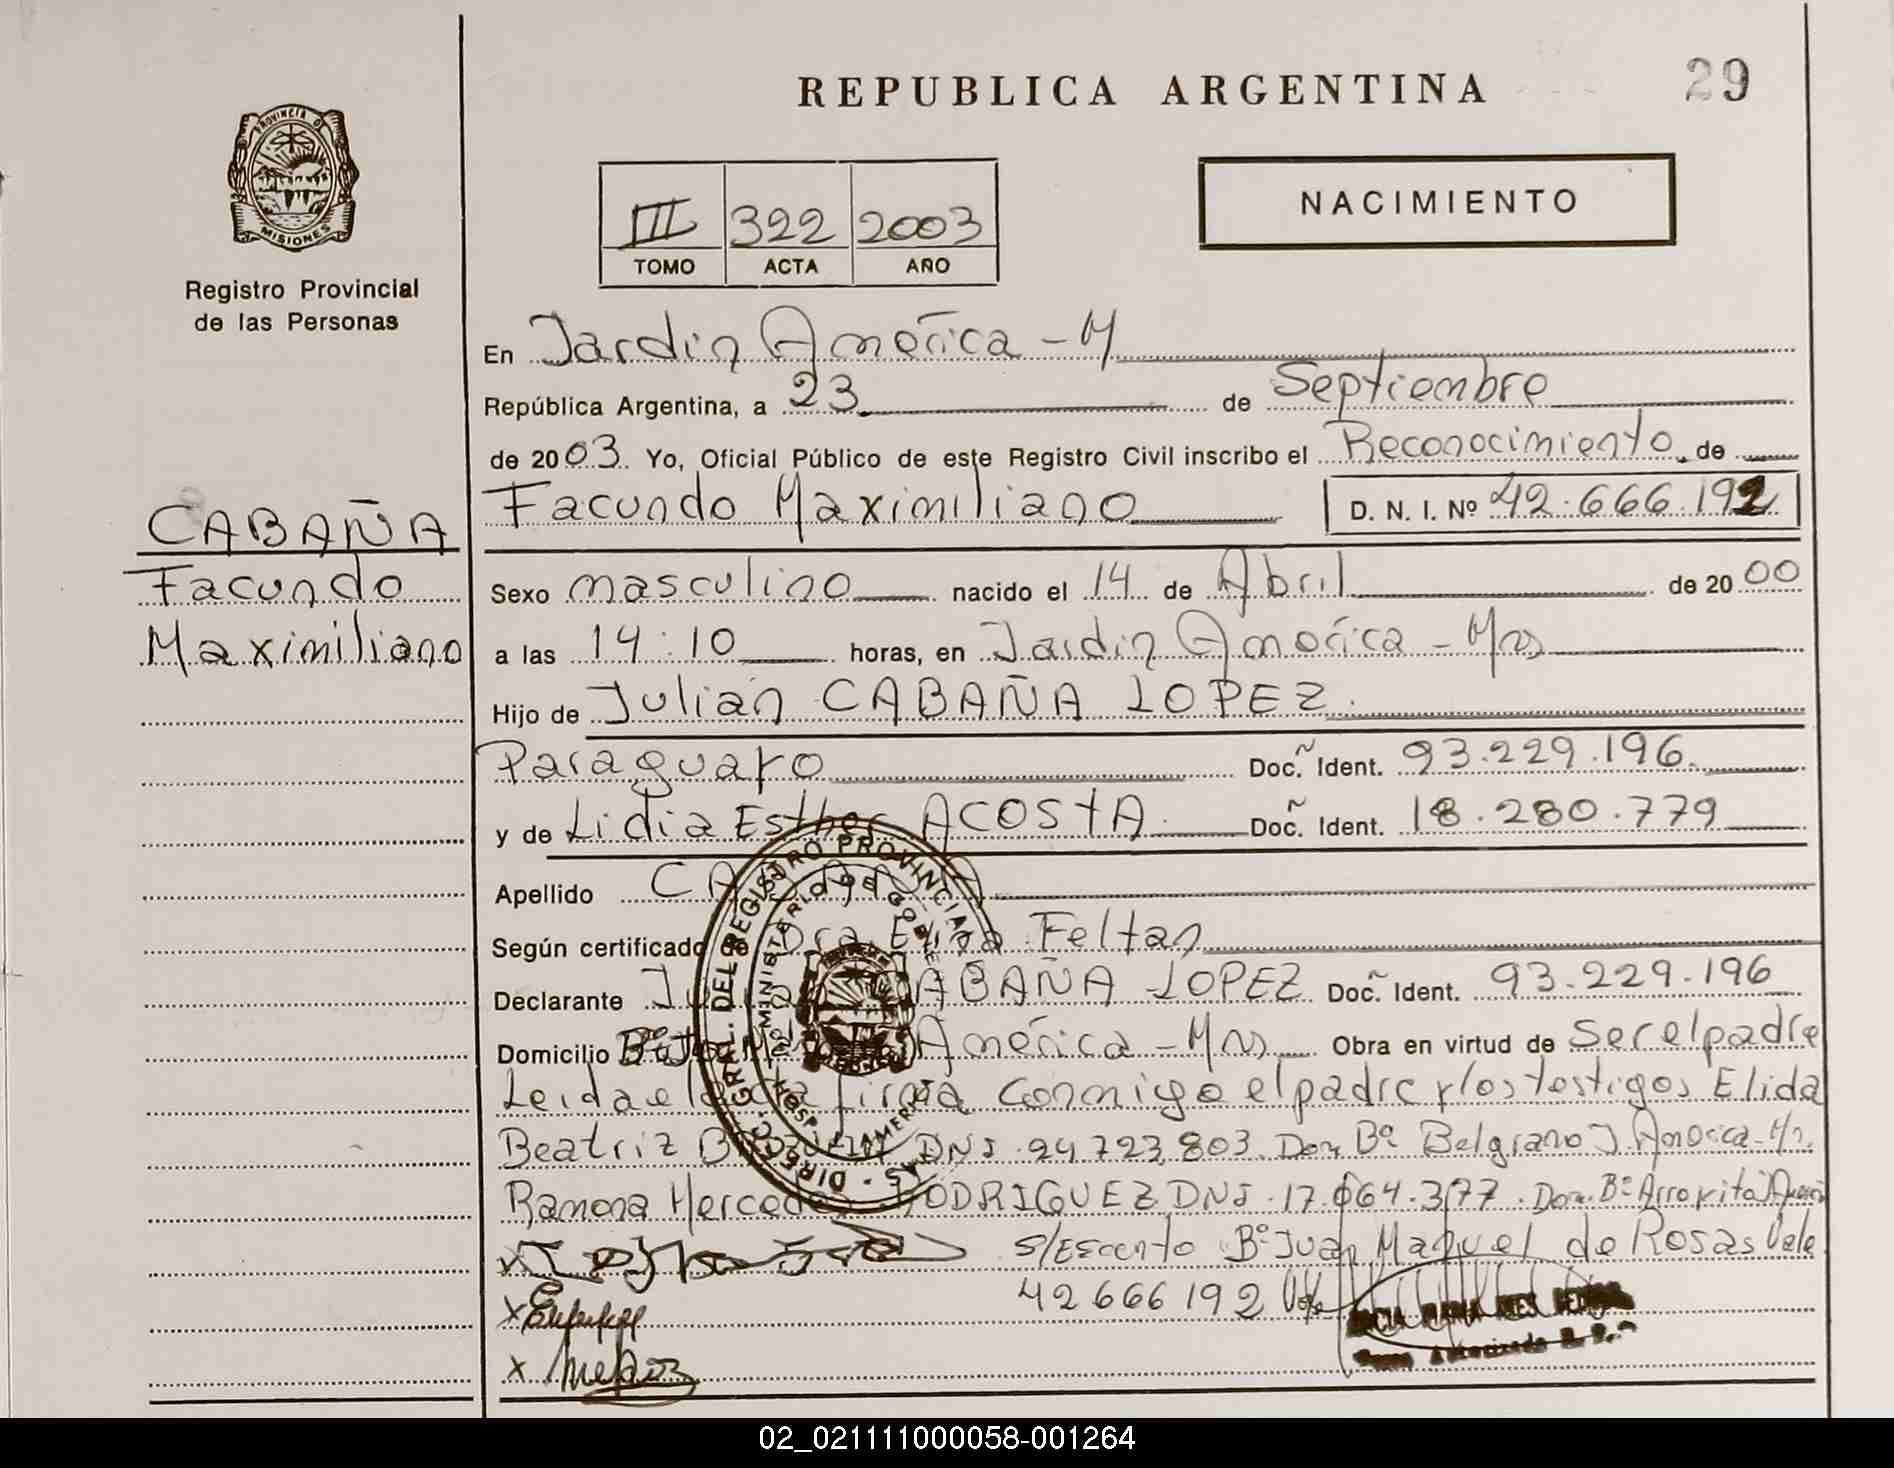 REPUBLICA ARGENTINA
29
PROVINCIA DE
MISIONES
Registro Provincial
de las Personas
III 322 2003
TOMO ACTA AÑO
NACIMIENTO
CABAÑA
Facundo
Maximiliano
En Jardin América - M
República Argentina, a 23 de Septiembre
de 2003. Yo, Oficial Público de este Registro Civil inscribo el Reconocimiento de
Facundo Maximiliano D. N. I. Nº 42.666.192
Sexo masculino nacido el 14 de Abril de 2000
a las 14:10 horas, en Jardin América - Mns
Hijo de Julian CABAÑA LOPEZ
Paraguayo Doc. Ident. 93.229.196
y de Lidia Esther ACOSTA Doc. Ident. 18.280.779
Apellido
Según certificado de Dra. Elisa Feltan
Declarante CABAÑA LOPEZ Doc. Ident. 93.229.196
Domicilio Bº América - Mns Obra en virtud de Ser el padre
Leida el acta firma conmigo el padre y los testigos Elida
Beatriz DNI 24723803 Dom Bº Belgrano J. América - Mns.
Ramona Mercedes RODRIGUEZ DNI 17.064.377 Dom. Bº
S/Escrito Bº Juan Manuel de Rosas Vale
42666192 Vale
DIRECC. GRAL. DEL REGISTRO PROVINCIAL
MINISTERIO DE
HOSP. J. AMERICA
02_021111000058-001264